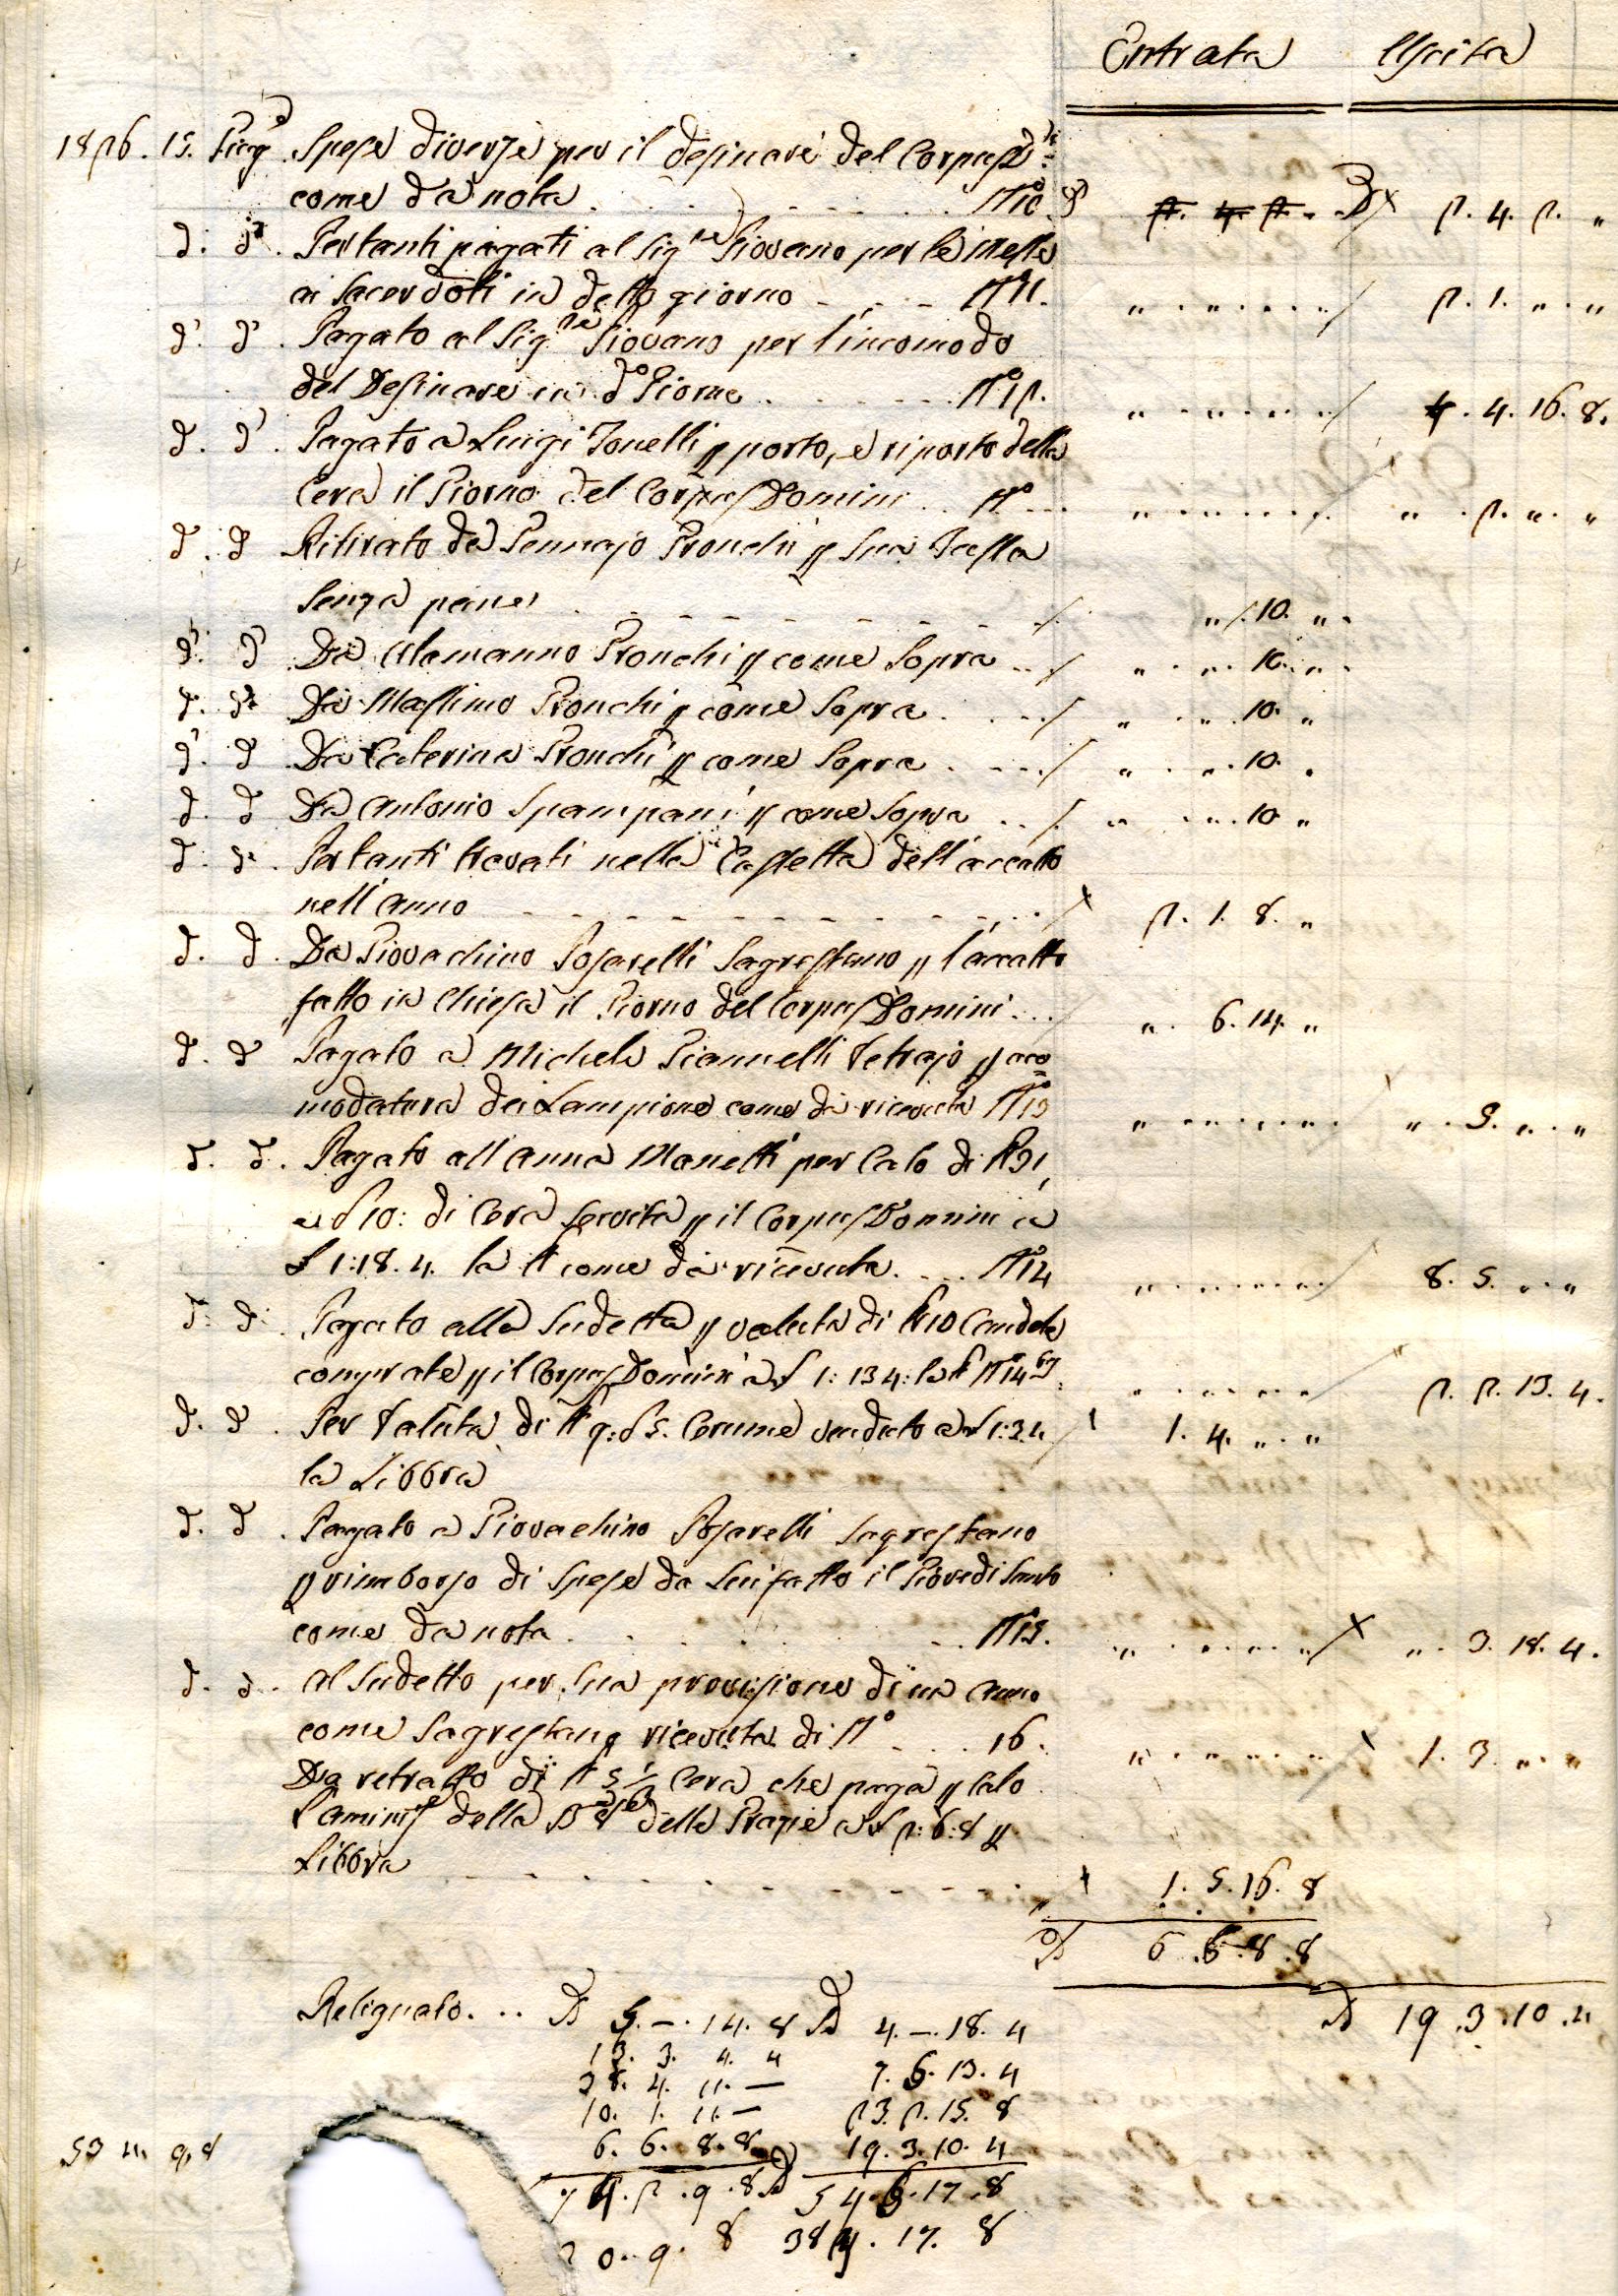 Entrata Uscita
1826. 15. Giug.o Spese diverse per il desinare del Corpus D.ni
come da nota . . . . . . N.o 10 2. 4. 2. „
d. d. Pertanti pagati al Sig.re Piovano per le messe
ai Sacerdoti in detto giorno - - - N.o 11. „ . „ . „ . „ 2. 1. „ . „
d. d. Pagato al Sig.re Piovano per l'incomodo
del Desinare in d.o Giorno . . . . . N.o 12. „ . „ . „ . „ 4. 16. 8.
d. d. Pagato a Luigi Tonelli p porto, e riporto della
Cera il Giorno del Corpus Domini . . N.o . . . „ . „ . „ . „ „ . 2. „ . „
d. d. Ritirato da Gennajo Bronchi p sua Tassa
senza pane . - - - - - - „ 1. 10. „ .
d. d. Da Alamanno Bronchi p come sopra . . „ . „ . 10. „ .
d. d. Da Massimo Bronchi p come sopra . . . „ . „ . 10. „
d. d. Da Caterina Bronchi p come sopra . . . „ . „ . 10. „
d. d. Da Antonio Spampani p come sopra . . „ . „ . 10 „
d. d. Pertanti trovati nella Cassetta dell'accatto
nell'anno - - - - - - - - 2. 1. 8. „
d. d. Da Giovachino Posarelli Sagrestano p l'accatto
fatto in Chiesa il Giorno del Corpus Domini . . . „ . 6. 14. „
d. d. Pagato a Michele Giannelli Vetrajo p aco=
modatura dei Lampioni come da ricevuta N.o 13 „ . „ . „ . „ „ . 5. „ . „
d. d. Pagato all'Anna Manetti per Calo di lb 31,
e d 10: di Cera servita p il Corpus Domini a
£ 1:18. 4. la lb come da ricevuta . . . . N.o 14 „ . „ . „ . „ 8. 5. „ . „
d. d. Pagato alla Sudetta p valuta di lb 10 Candele
comprate p il Corpus Domini a £ 1: 13 4: la lb N.o 14 „ . „ . „ . „ 2. 2. 13. 4.
d. d. Per Valuta di lb 9: d 5. Cerume venduto a £ 1:3.4 1. 4. „ . „
la Libbra
d. d. Pagato a Giovachino Posarelli Sagrestano
p rimborso di Spese da Lui fatto il Giovedi Santo
come da nota . . . . . . N.o 15. „ . „ . „ . „ „ . 3. 18. 4.
d. d. Al Sudetto per sua provisione di un anno
come Sagrestano ricevuta di N.o . . . 16. „ . „ . „ . „ 1. 3. „ . „
Da retratto di lb 5 Cera che paga p Calo
della delle Grazie a £ 2: 6: 8 p
Libbra - - - - - - - - - 1. 5. 16. 8
6. 6. 8. 8
Relignato. . . 5. —. 14. 8 4. —. 18. 4 19. 3. 10. 4
13. 3. 4. 4 7. 6. 13. 4
38. 4. 11. — 23. 2. 15. 8
10. 1. 11. — 19. 3. 10. 4
53 4. 9. 8 6. 6. 8. 8
74. 2. 9. 8 54. 6. 17. 8
0. 9. 8 384. 17. 8